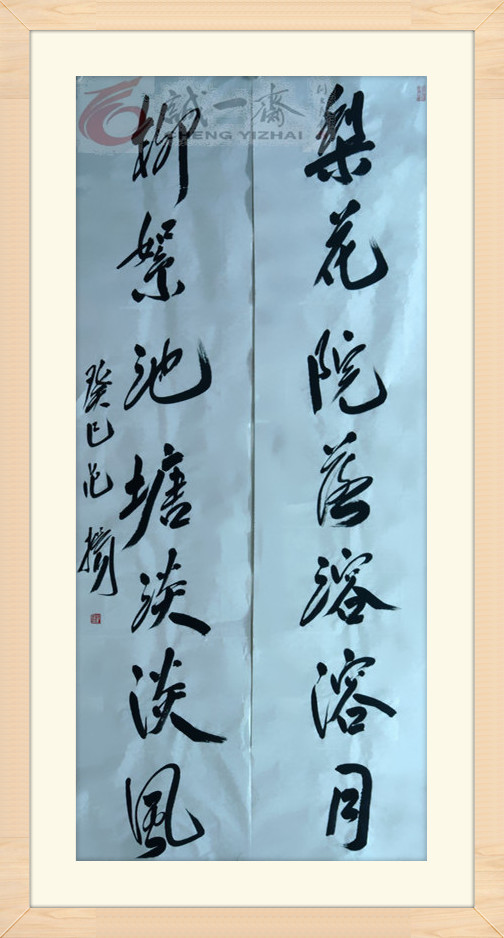 梨花院落溶溶月
柳絮池塘淡淡風
癸巳
誠一齋
CHENG YIZHAI